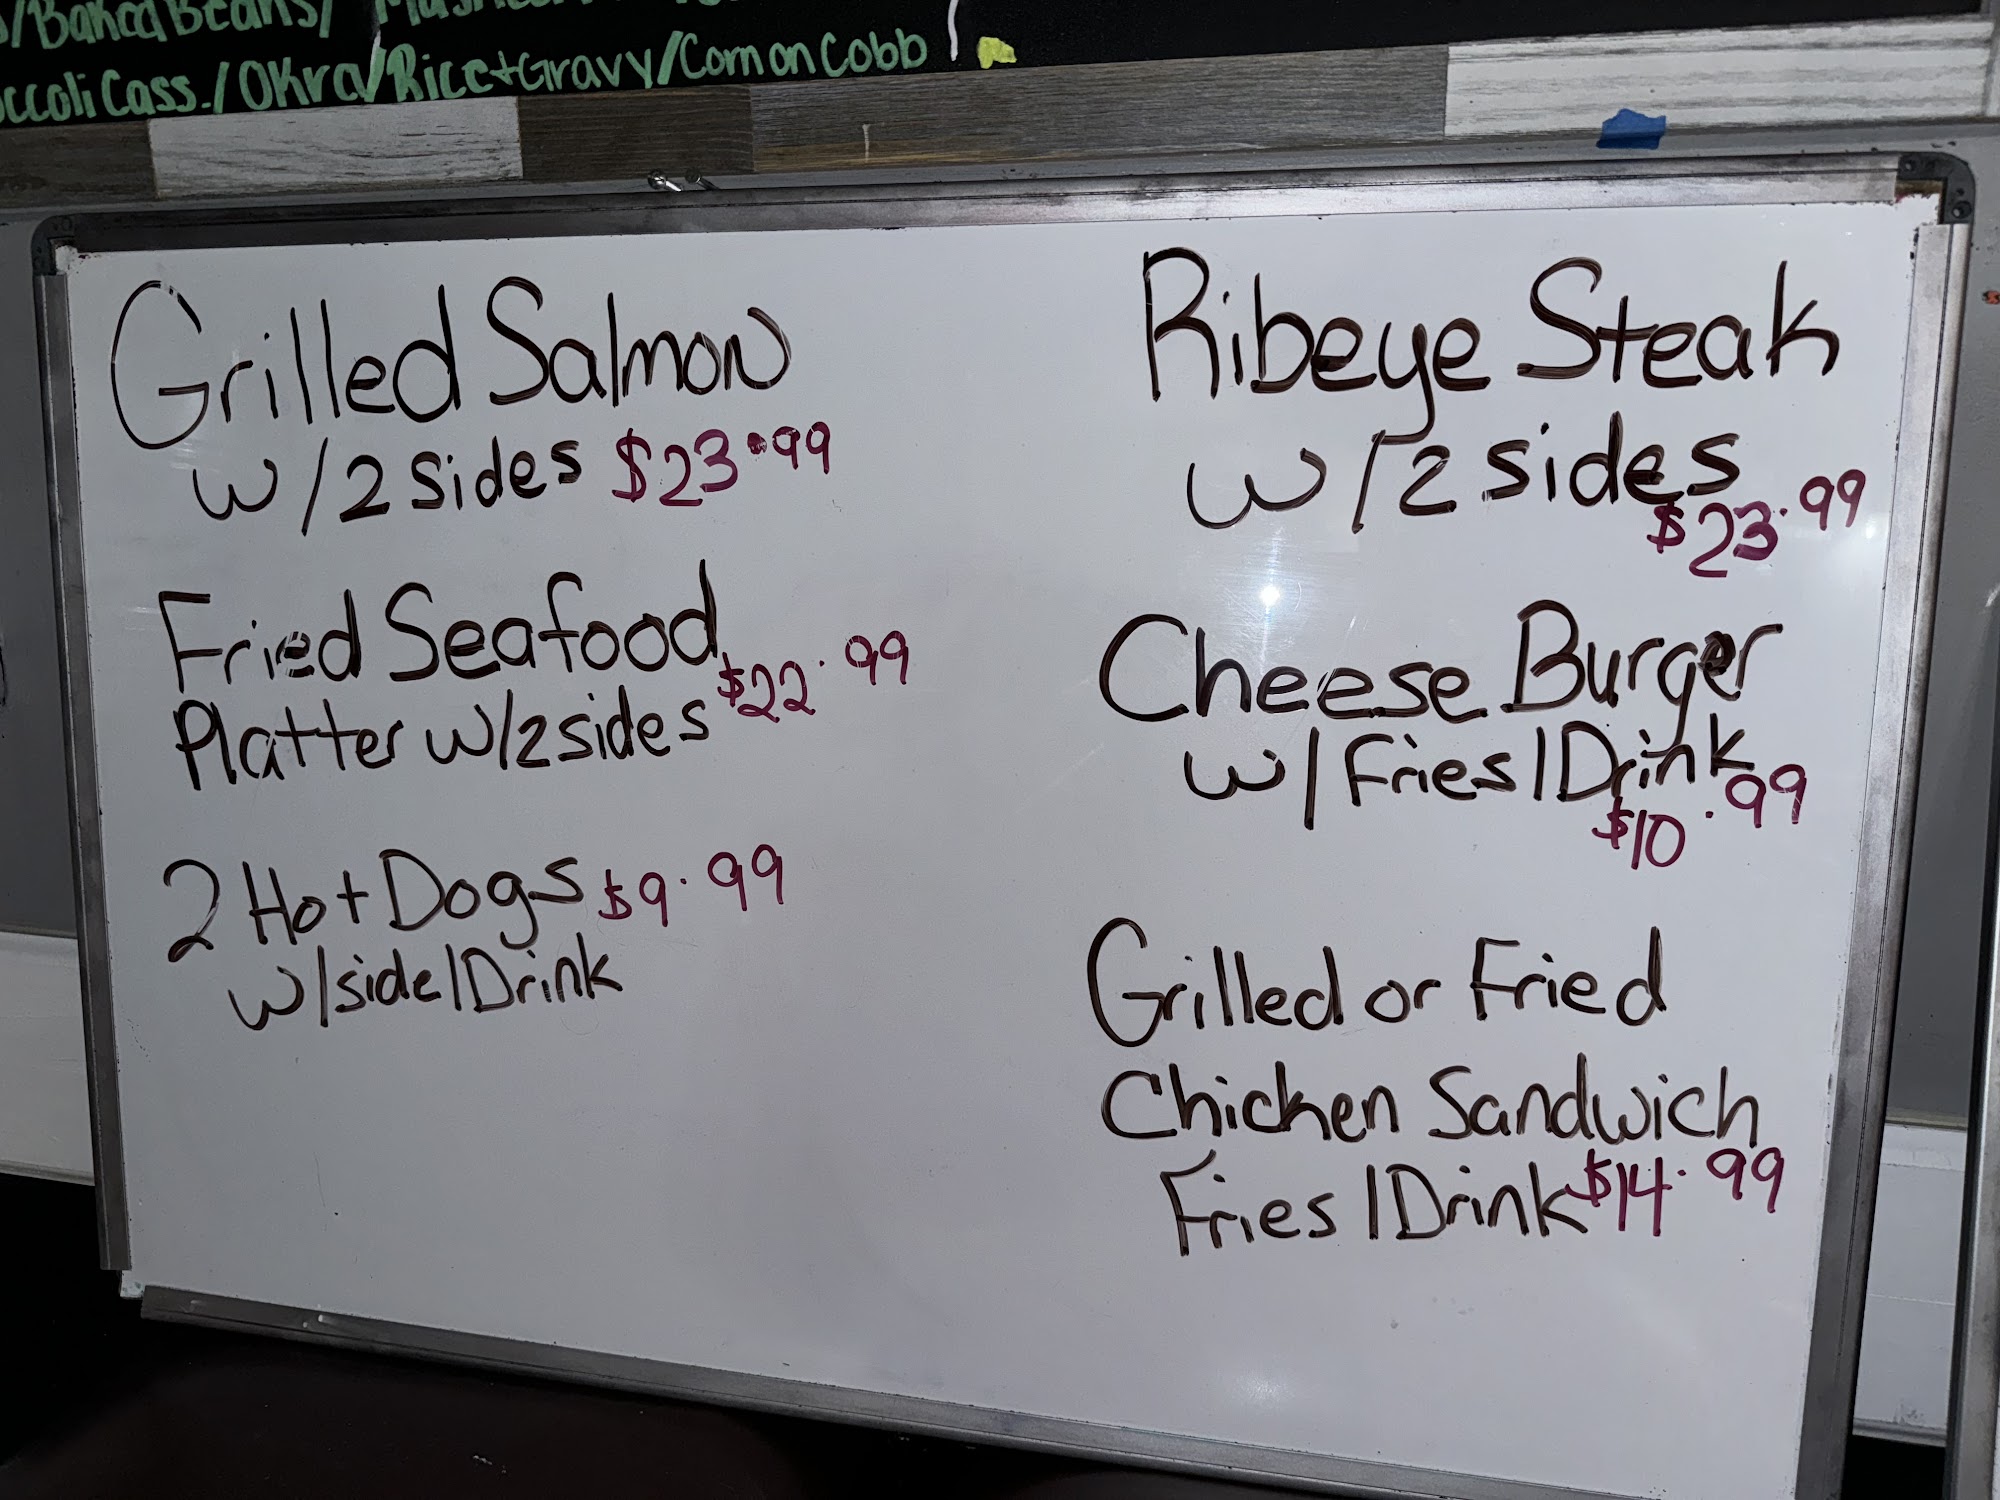 /Baked Beans/
Cass./OKra/Rice+Gravy/Corn on Cobb
Grilled Salmon
w/2 sides $23.99
Fried Seafood
Platter w/2 sides $22.99
2 Hot Dogs $9.99
w/side/Drink
Ribeye Steak
w/2 sides
$23.99
Cheese Burger
w/Fries/Drink
$10.99
Grilled or Fried
Chicken Sandwich
Fries/Drink $14.99